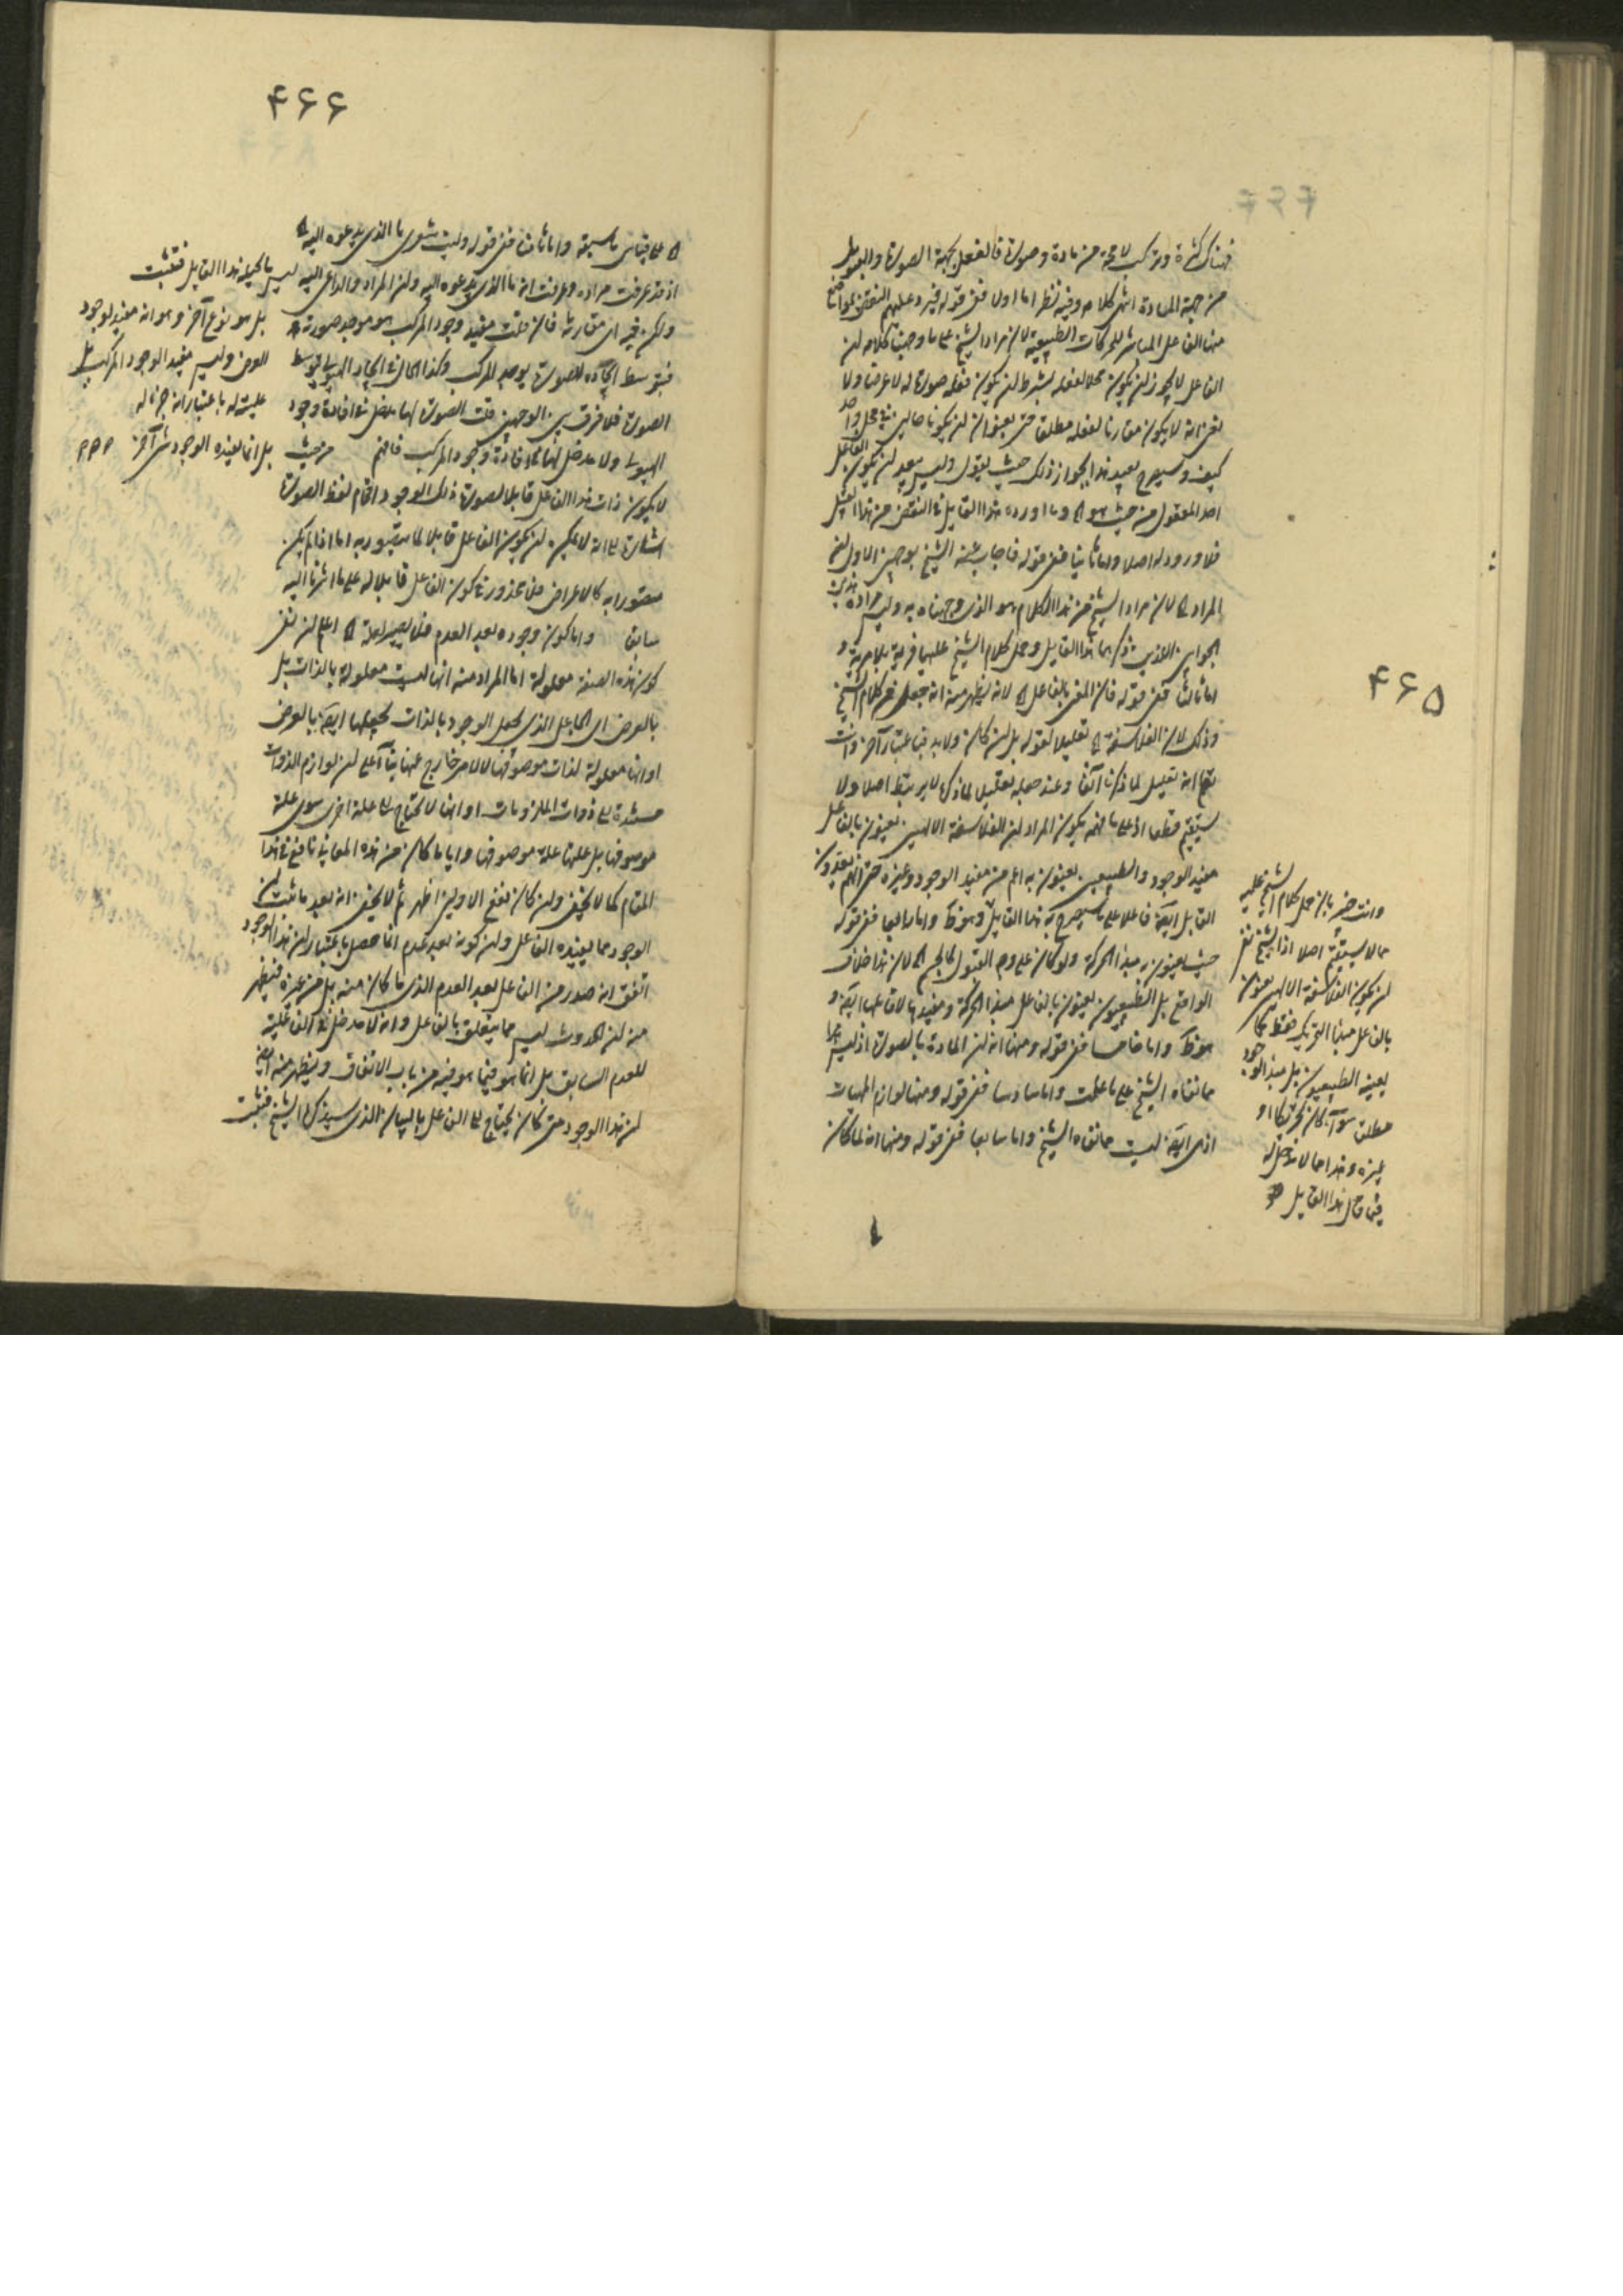 ۴۶۵
فهناك كثرة وتركب لا محة من مادة وصورة فالفعل بجهة الصورة والقبول
من جهة المادة انتهى كلامه وفيه نظر اما اولا ففى قوله فيرد عليهم النقض بمواضع
منها الفاعل المباشر للحركات الطبيعية لان مراد الشيخ على ما وجهنا كلامه ان
الفاعل لا يجوز ان يكون محلا لفعله بشرط ان يكون فعله صورة له لا عرضا ولا
يعنى انه لا يكون مقارنا لفعله مطلقا حتى بعنوان ان يكونا حالين فى محل واحد
كيف وسيصرح بعيد هذا بجواز ذلك حيث يقول وليس ببعيد ان يكون الفاعل
احد المعقول من حيث هو اه وما اورده هذا القايل فى النقض من هذا القبيل
فلا ورود له اصلا واما ثانيا ففى قوله فاجاب عنه الشيخ بوجهين الاول ان
المراد اه لان مراد الشيخ من هذا الكلام هو الذى وجهناه به وليس مراده بهذين
الجوابين الذين ذكرهما هذا القايل وحمل كلام الشيخ عليهما فرية بلا مرية و
اما ثالثا ففى قوله فان المعنى بالفاعل اه لانه يظهر منه انه جعل كلام الشيخ
وذلك لان الفلاسفة اه تعليلا لقوله بل ان كان ولا بد فباعتبار آخر وانت
تعلم انه تعليل لما ذكرنا آنفا وعند جعله تعليل لما ذكره لا يرتبط اصلا ولا
يستقيم قطعا اذ على ما فهمه يكون المراد ان الفلاسفة الالهيين يعنون بالفاعل
مفيد الوجود والطبيعيين يعنون به اعم من مفيد الوجود وغيره حتى انهم يعدون
القابل ايضا فاعلا على ما سيصرح به هذا القايل وهو كك واما رابعا ففى قوله
حيث يعنون به مبدأ الحركة ولو كان على وجه القبول كالجسم اه لان هذا خلاف
الواقع بل الطبيعيون يعنون بالفاعل مبدأ الحركة ومفيدها لا قابلها ايضا و
هو كك واما خامسا ففى قوله ومنها انه ان المادة بالصورة اذ ليس هذا
مما نفاه الشيخ على ما علمت واما سادسا ففى قوله ومنها لوازم المهيات
اذ هى ايضا ليست مما نفاه الشيخ واما سابعا ففى قوله ومنها انه لما كان
وانت خبير بان حمل كلام الشيخ عليه
مما لا يستقيم اصلا اذ الشيخ نفى
ان يكون الفلاسفة الالهيين يعنون
بالفاعل مبدأ التحريك فقط كما
يعنيه الطبيعيون بل مبدأ الوجود
مطلقا سواء كان تحريكا او
غيره وهذا مما لا مدخل له
فيما قال هذا القايل
۴۶۶
اه على قياس ما سبق واما ثامنا ففى قوله وليت شعرى ما الذى يدعوه اليه اه
اذ قد عرفت مراده وعرفت ان ما الذى يدعوه اليه وان المراد والداعى اليه ليس ما تخيله هذا القايل فتثبت
ولكن فيه اى مقارنة فان قلت مفيد وجود المركب هو موجد صورته
فبتوسط ايجاده للصورة يوجد المركب وكذا الحال فى ايجاد الهيولى بتوسط
الصورة فلا فرق بين الوجهين قلت الصورة لها مدخل فى افادة وجود
الهيولى ولا مدخل لها فى افادة وجود المركب فافهم من حيث
لا يكون ذات هذا الفاعل قابلا لصورة ذلك الوجود اقحام لفظ الصورة
اشارة الى انه لا يمكن ان يكون الفاعل قابلا لما يتصور به اما اذا لم يكن
متصورا به كالاعراض فلا محذور فى كون الفاعل قابلا له على ما اشرنا اليه
سابقا واما كون وجوده بعد العدم فلم يصير لعلة اه اعلم ان نفى
كون هذه الصفة معلولة اما المراد منه انها ليست معلولة بالذات بل
بالعرض اى الجاعل الذى يجعل الوجود بالذات يجعلها ايضا بالعرض
او انها معلولة لذات موصوفها لا لامر خارج عنها بناء على ان لوازم الذوات
مستندة الى ذوات الملزومات او انها لا تحتاج الى علة اخرى سوى علة
موصوفها بل علتها علة موصوفها واياما كان من هذه المعانى نافع فى هذا
المقام كما لا يخفى وان كان نفع الاولين اظهر ثم لا يخفى انه بعد ما ثبت ان
الوجود مما يفيده الفاعل وان كونه بعد عدم انما حصل باعتبار ان هذا الوجود
اتفق انه صدر من الفاعل بعد العدم الذى ما كان منه بل من غيره فيظهر
منه ان الحدوث ليس مما يتعلق بالفاعل وانه لا مدخل فى الفاعلية
للعدم السابق بل انما هو فيما هو فيه من باب الاتفاق ويظهر منه ايضا
ان هذا الوجود متى كان يحتاج الى الفاعل بالبيان الذى سيذكره الشيخ فتثبت
بل هو نوع آخر وهو انه مفيد لوجود
العرض وليس مفيد الوجود المركب بل
عليته له باعتبار انه جزء له
بل انما يفيده الوجود شئ آخر